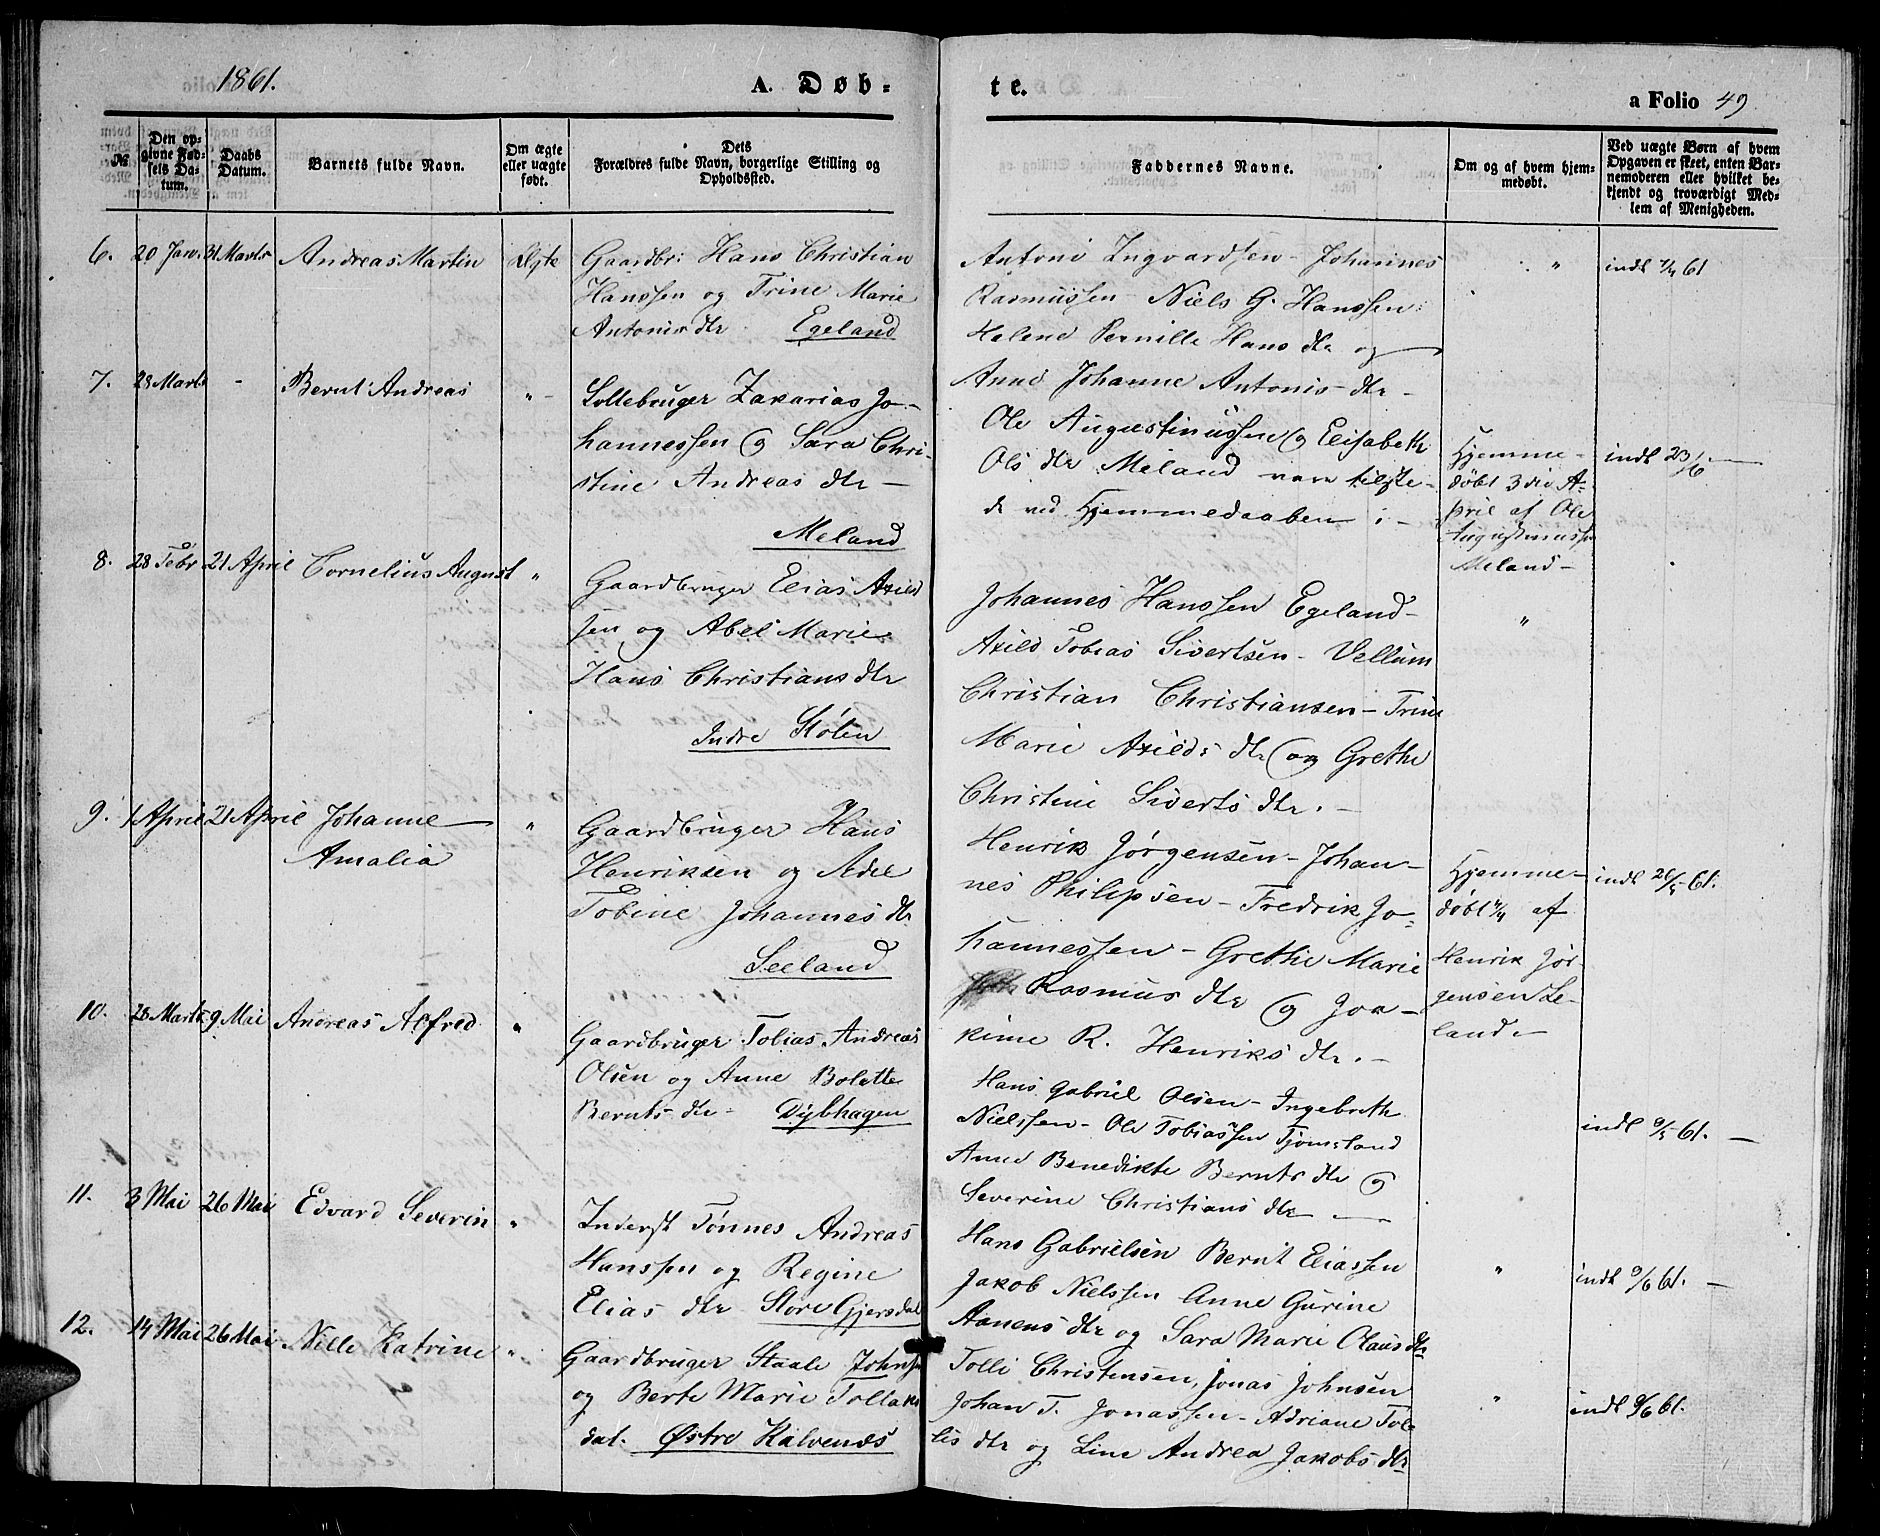 1861.
A. Døb-
te.
a Folio 49
№
Den op-
givne Fød-
sels Da-
tum.
Daabs
Datum.
Barnets fulde Navn.
Om ægte
eller uægte
født.
Dets
Forældres fulde Navn, borgerlige Stilling og
Opholdssted.
Faddernes Navne.
Om og af hvem hjem-
medøbt.
Ved uægte Børn af hvem
Opgaven er skeet, enten Bar-
nemoderen eller hvilket be-
kjendt og troværdigt Med-
lem af Menigheden.
6. 20 Jan. 31 Marts Andreas Martin Ægte
Gaardbr: Hans Christian
Hanssen og Trine Marie
Antonis dtr. Egeland
Antoni Ingvardsen - Johannes
Rasmussen - Niels G. Hanssen
Helene Pernille Hans dtr og
Anne Johanne Antonis dtr -
"
indt 7/4 61
7. 23 Marts - Bernt Andreas " -
Sollebruger Zakarias Jo-
hannessen og Sara Chri-
stine Andreas dtr -
Meland
Ole Augustinussen og Elisabeth
Ols dtr Meland vare tilste-
de ved Hjemmedaaben : -
Hjemme-
døbt 3die A-
pril af Ole
Augustinussen
Meland -
indt 23/6
8. 28 Febr 21 April Cornelius August "
Gaardbruger Elias Axild
sen og Abel Marie
Hans Christians dtr
Indre Stölen
Johannes Hanssen Egeland -
Axild Tobias Sivertsen - Vellum
Christian Christiansen - Trine
Marie Axilds dtr og Grethe
Christine Siverts dtr. -
"
9. 1 April 21 April Johanne
Amalia "
Gaardbruger Hans
Henriksen og Adel
Tobine Johannes dtr
Seeland
Henrik Jørgensen - Johan-
nes Philipsen - Fredrik Jo-
hannessen - Grethe Marie
Rasmus dtr og Joa-
kime R. Henriks dtr. -
Hjemme-
døbt 4/4 af
Henrik Jør-
gensen Se-
land -
indt 26/5 61.
10. 28 Marts 9 Mai Andreas Alfred "
Gaardbruger Tobias Andreas
Olsen og Anne Bolette
Bernts dtr - Dybhagen
Hans Gabriel Olsen - Ingebreth
Nielssen - Ole Tobiassen Tjomsland
Anne Benedikte Bernts dtr og
Severine Christians dtr -
indt 9/5 61. -
11. 3 Mai 26 Mai Edvard Severin "
Inderst Tönnes Andreas
Hanssen og Regine
Elias dtr Store Gjersdal
Hans Gabrielsen Bernt Eliassen
Jakob Nielssen Anne Gurine
Aanens dtr og Sara Marie Olaus dtr
"
indt 9/6 61. -
12. 14 Mai 26 Mai Nille Katrine "
Gaardbruger Staale Johnsen
og Berte Marie Tollaks
dat. Østre Kalvenes
Tolli Christensen, Jonas Johnsen
Johan T. Jonassen - Adriane Tol-
lis dtr og Line Andrea Jakobs dtr
"
indt 9/6 61.